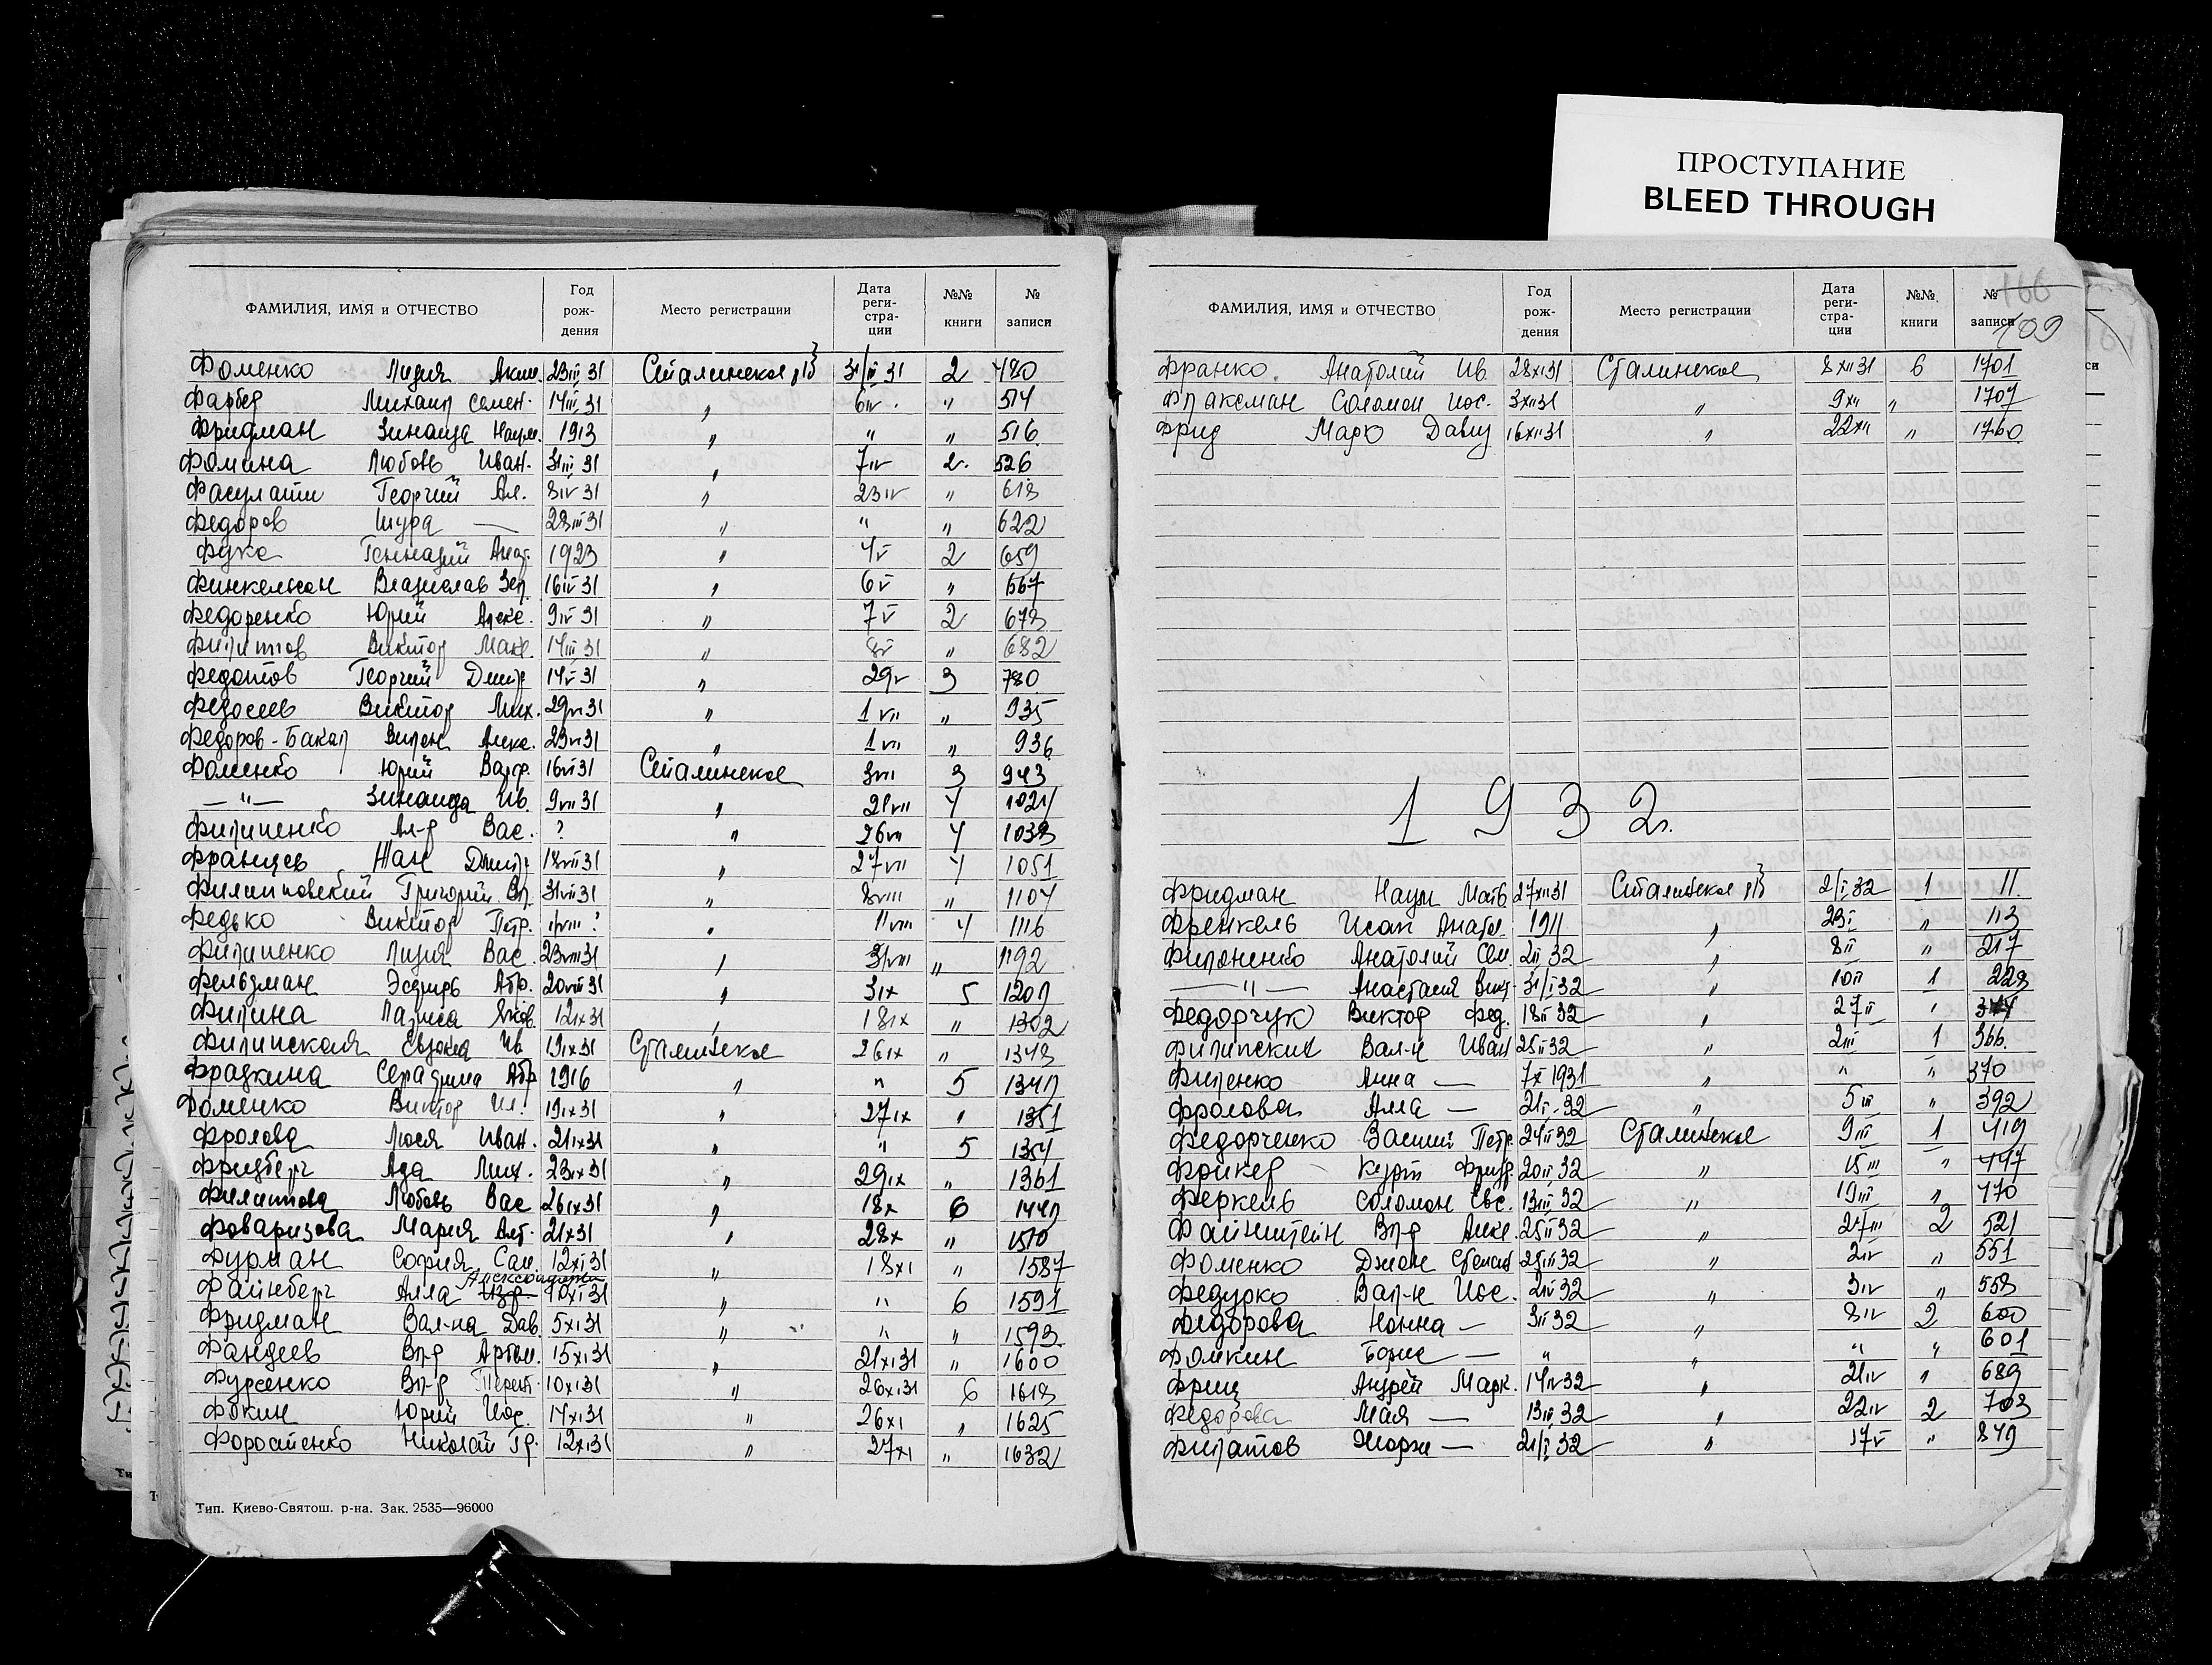 ПРОСТУПАНИЕ
BLEED THROUGH
ФАМИЛИЯ, ИМЯ и ОТЧЕСТВО Год рож- дения Место регистрации Дата реги- стра- ции №№ книги № записи
Фоменко Лидия Аким. 23III31 Сталинское 31/III 31 2 480
Фарбер Михаил Семен. 14III31 " 6IV " 514
Фридман Зинаида Наум. 1913 " " " 516
Фомина Любовь Иван. 31III31 " 7IV 2 526
Фасулати Георгий Ал. 8IV31 " 23IV " 618
Федоров Шура — 28III31 " " " 622
Фукс Геннадий Анат. 1923 " 4V 2 659
Финкельсон Владислав 16IV31 " 6V " 667
Федоренко Юрий Алекс. 9IV31 " 7V 2 673
Филиппов Виктор Макс. 14III31 " 8V " 682
Федотов Георгий Дмитр 14V31 " 29V 3 780
Федосеев Виктор Мих. 29VI31 " 1VII " 935
Федоров-Бакал Вилен Алекс. 23VI31 " 1VII " 936
Фоменко Юрий 16VI31 Сталинское 3VII 3 943
— " — Зинаида Ив. 9VII31 " 21VII 4 1021
Филипенко Ал-р Вас. ? " 26VII 4 1033
Францев Жан Дмитр 18VII31 " 27VII 4 1051
Филипповский Григорий Вл. 31VII31 " 8VIII " 1107
Федько Виктор Петр. ? " 11VIII 4 1116
Филипенко Лидия Вас. 23VIII31 " 31VIII " 1192
Фельдман Эсфирь Абр. 20VIII31 " 3IX 5 1207
Филина Лариса Яков. 12IX31 " 18IX " 1302
Филипская Евдокия Ив 19IX31 Сталинское 26IX " 1343
Фрадкина Серафима Абр 1916 " " 5 1347
Фоменко Виктор Ил. 19IX31 " 27IX " 1351
Фролова Люся Иван. 21IX31 " " 5 1354
Фридберг Ада Мих. 23IX31 " 29IX " 1361
Филиппова Любовь Вас 26IX31 " 18X 6 1447
Фоваризова Мария Ант. 21X31 " 28X " 1510
Фурман София Сам. 12XI31 " 18XI " 1587
Александровна
Файнберг Алла 10XI31 " " 6 1591
Фридман Вал-на Дав. 5XI31 " " " 1593
Фандеев Вл-р Артем. 15XI31 " 21XI31 " 1600
Фурсенко Вл-р Терент. 10XI31 " 26XI31 6 1618
Фокин Юрий Иос. 14XI31 " 26XI " 1625
Форостенко Николай Гр. 12XI31 " 27XI " 1632
Тип. Киево-Святош. р-на. Зак. 2535—96000
166
109
ФАМИЛИЯ, ИМЯ и ОТЧЕСТВО Год рож- дения Место регистрации Дата реги- стра- ции №№ книги № записи
Франко Анатолий Ив. 28XI31 Сталинское 8XII31 6 1701
Флаксман Соломон Иос. 3XII31 " 9XII " 1707
Фрид Марк Давид 16XII31 " 22XII " 1760
1932 г.
Фридман Наум Матв 27XII31 Сталинское 2/I 32 1 11.
Френкель Исак Анатол. 1911 " 23I " 113
Филоненко Анатолий Сем. 2II32 " 8II " 217
— " — Анастасия Викт. 31/I32 " 10II 1 223
Федорчук Виктор Фед. 18II32 " 27II "
Филипских Вал-н Иван 25II32 " 2III 1 366.
Филенко Анна — 7X1931 " " " 370
Фролова Алла — 21I-32 " 5III " 392
Федорченко Василий Петр 24II32 Сталинское 9III 1 419
Фрикер Курт Фрид. 20II32 " 15III " 447
Феркель Соломон Евс. 13III32 " 19III " 470
Файнштейн Вл-р Алекс. 25II32 " 27III 2 521
Фоменко Джон Степан 25III32 " 2IV " 551
Федурко Вал-н Иос. 2IV32 " 3IV " 553
Федорова Нонна — 3II32 " 8IV 2 600
Фомкин Борис — " " " " 601
Фриц Андрей Марк. 14IV32 " 21IV " 689
Федорова Мая — 13III32 " 22IV 2 703
Филатов Жорж — 21/I32 " 17V " 849